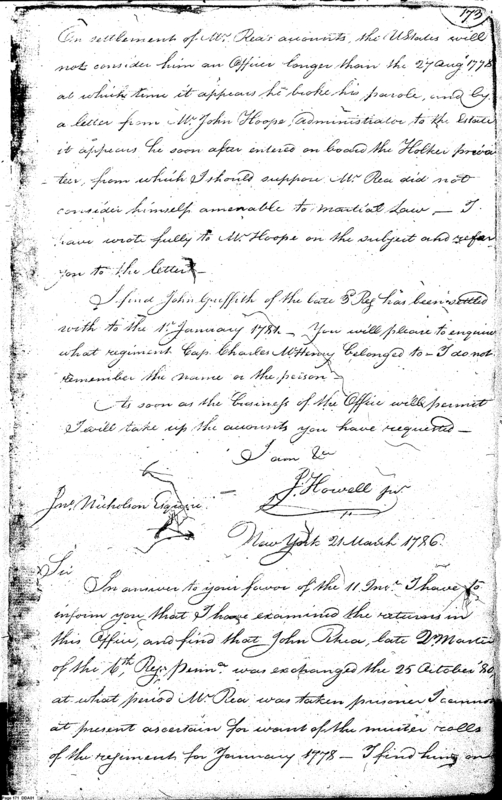 173
On settlement of Mr. Rea's accounts, the UStates will
not consider him an Officer longer than the 27 Augt 1778
at which time it appears he broke his parole, and by
a letter from Mr John Hoope, administrator to the Estate
it appears he soon after entered on board the Holker priva
teer, from which I should suppose Mr Rea did not
consider himself amenable to martial Law, — I
have wrote fully to Mr Hoope on the subject and refer
you to the letter —
I find John Griffith of the late Reg has been settled
with to the 1st January 1781. — You will please to enquire
what regiment Cap. Charles McHenry belonged to — I do not
remember the name or the person —
As soon as the business of the Office will permit
I will take up the accounts you have requested —
I am &c
J. Howell jr.
Jno. Nicholson Esquire. —
New York 21 March 1786.
Sir
In answer to your favor of the 11 Inst. I have to
inform you that I have examined the returns in
this Office, and find that John Rhea, late Master
of the 6th Reg. Pennsa. was exchanged the 25 October 80,
at what period Mr Rea was taken prisoner I cannot
at present ascertain for want of the muster rolls
of the regiment for January 1778 — I find him on